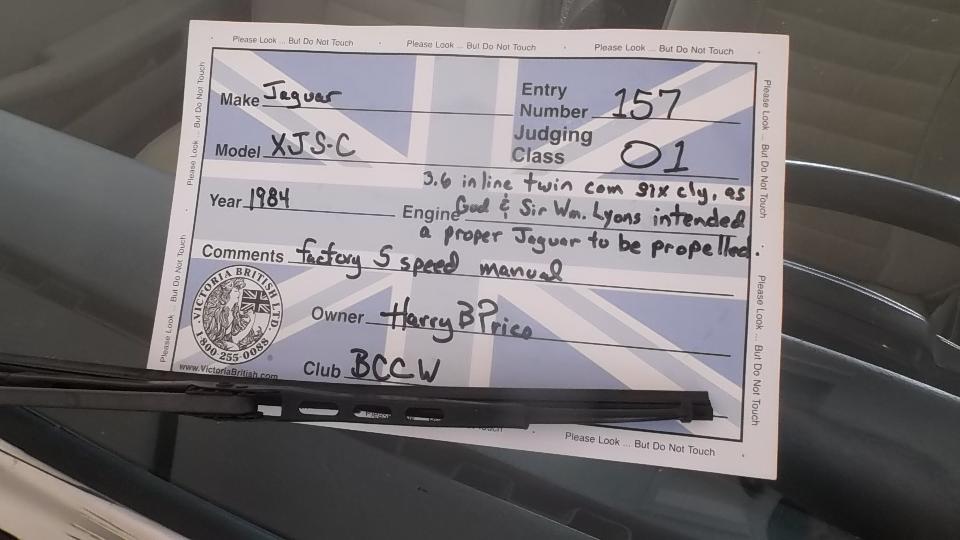 Please Look ... But Do Not Touch · Please Look ... But Do Not Touch · Please Look ... But Do Not Touch
Please Look ... But Do Not Touch
Please Look ... But Do Not Touch
Make Jaguar
Entry Number 157
Model XJS-C
Judging Class 01
Year 1984
Engine 3.6 inline twin cam six cly, as
God & Sir Wm. Lyons intended
a proper Jaguar to be propelled.
Comments factory 5 speed manual
Owner Harry B Price
Club BCCW
· VICTORIA BRITISH LTD ·
1-800-255-0088
www.VictoriaBritish.com
Please Look ... But Do Not Touch
Please Look ... But Do Not Touch
Please
Touch
Please Look ... But Do Not Touch